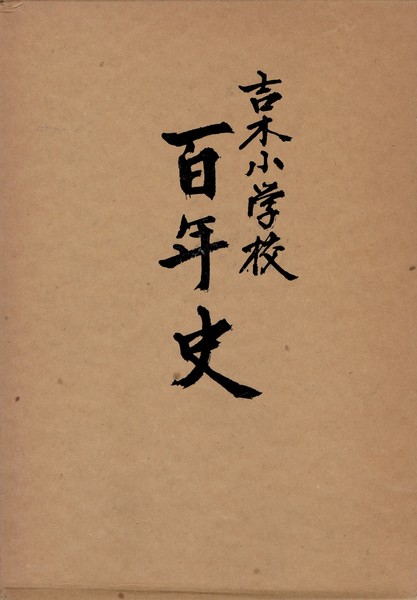 吉木小学校
百年史